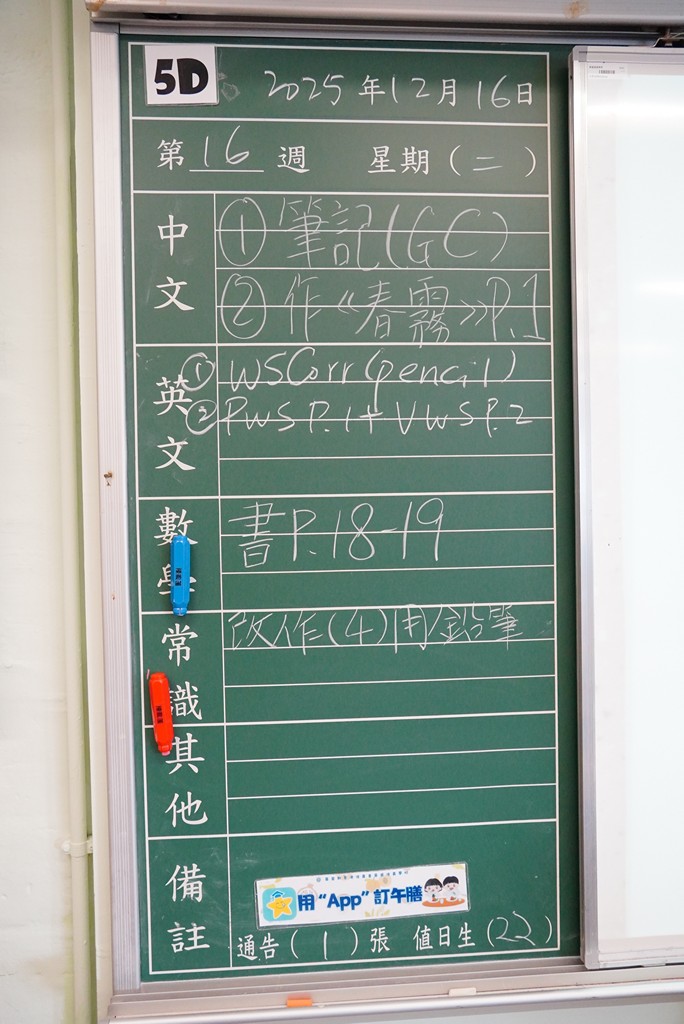 5D 2025年12月16日
第16週 星期(二)
中文
①筆記(GC)
②作《春霧》P.1
英文
①WSCorr(pencil)
②RWSP.1+VWSP.2
數學
書P.18-19
常識
改作(4)用鉛筆
其他
備註
用“App”訂午膳
通告(1)張 值日生(22)